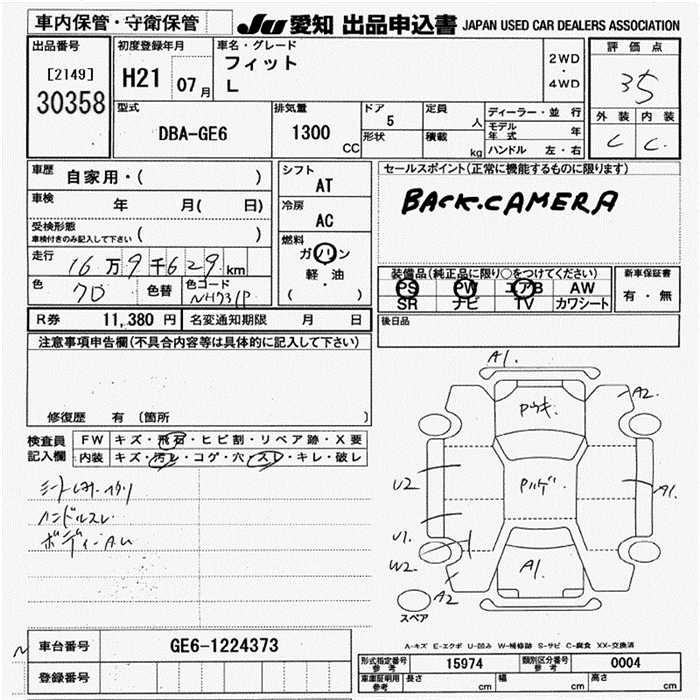 車内保管・守衛保管
JU 愛知 出品申込書 JAPAN USED CAR DEALERS ASSOCIATION
出品番号
[2149]
30358
初度登録年月
H21 07月
車名・グレード
フィット
L
2WD
・
4WD
評価点
3.5
外装 内装
C C
型式
DBA-GE6
排気量
1300 CC
ドア
5
形状
定員
人
積載
kg
ディーラー・並行
モデル年式 年
ハンドル 左・右
車歴 自家用・( )
車検 年 月( 日)
受検形態
車検付きのみ記入して下さい ( )
走行 16万9千629km
色 70 色替 色コード NH731P
シフト
AT
冷房
AC
燃料
ガソリン
軽・油
( )
セールスポイント(正常に機能するものに限ります)
BACK.CAMERA
装備品(純正品に限り○をつけてください)
PS PW エアB AW
SR ナビ TV カワシート
新車保証書
有・無
R券 11,380 円 名変通知期限 月 日
後日品
注意事項申告欄(不具合内容等は具体的に記入して下さい)
修復歴 有 (箇所 )
検査員記入欄
FW キズ・飛石・ヒビ割・リペア跡・X要
内装 キズ・汚レ・コゲ・穴・スレ・キレ・破レ
ハンドルスレ
ボディーA.U
A1.
A2.
Pウキ.
Pハゲ.
U2
A1.
U1.
W2.
A1.
A2
スペア
A-キズ E-エクボ U-凹み W-補修跡 S-サビ C-腐食 XX-交換済
車台番号 GE6-1224373
登録番号
形式指定番号参考 15974 類別区分番号参考 0004
車庫証明用参考 長さ cm 幅 cm 高さ cm